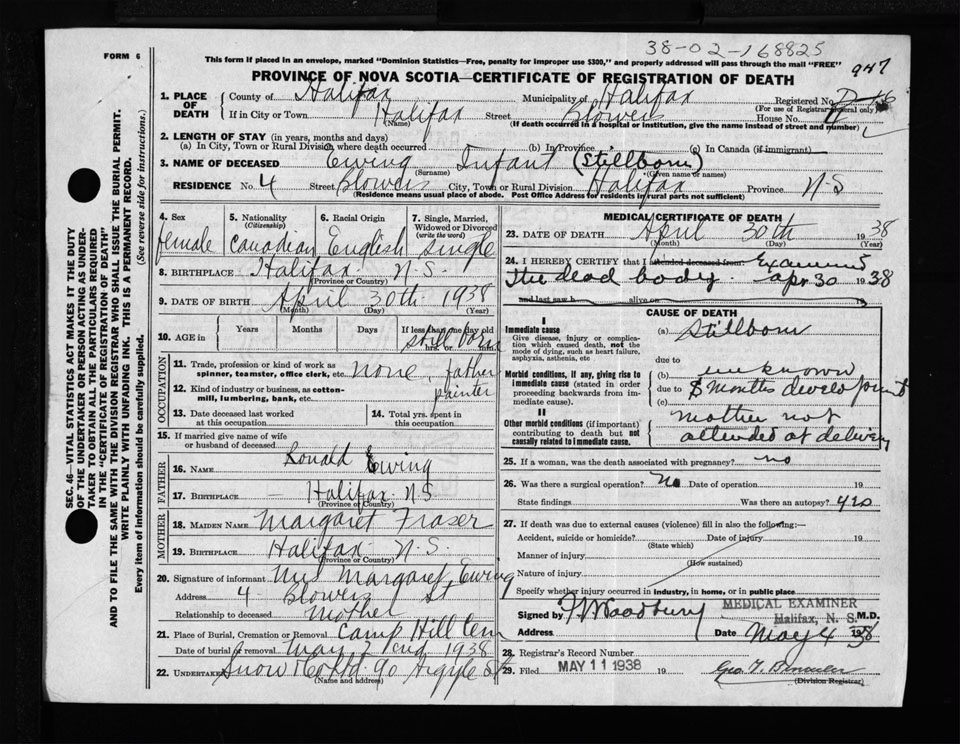 38-02-168825
FORM 6
This form if placed in an envelope, marked "Dominion Statistics—Free, penalty for improper use $300," and properly addressed will pass through the mail "FREE"
947
PROVINCE OF NOVA SCOTIA—CERTIFICATE OF REGISTRATION OF DEATH
SEC. 46—VITAL STATISTICS ACT MAKES IT THE DUTY
OF THE UNDERTAKER OR PERSON ACTING AS UNDER-
TAKER TO OBTAIN ALL THE PARTICULARS REQUIRED
IN THE "CERTIFICATE OF REGISTRATION OF DEATH"
AND TO FILE THE SAME WITH THE DIVISION REGISTRAR WHO SHALL ISSUE THE BURIAL PERMIT.
WRITE PLAINLY WITH UNFADING INK. THIS IS A PERMANENT RECORD.
Every item of information should be carefully supplied. (See reverse side for instructions.)
1. PLACE OF DEATH County of Halifax Municipality of Halifax Registered No.
(For use of Registrar General only)
If in City or Town Halifax Street Blowers House No. 4
(Name) (If death occurred in a hospital or institution, give the name instead of street and number)
2. LENGTH OF STAY (in years, months and days)
(a) In City, Town or Rural Division where death occurred (b) In Province (c) In Canada (if immigrant)
3. NAME OF DECEASED Ewing Infant (Stillborn)
(Surname) (Given name or names)
RESIDENCE No. 4 Street Blowers City, Town or Rural Division Halifax Province N-S
(Residence means usual place of abode. Post Office Address for residents in rural parts not sufficient)
4. Sex female
5. Nationality (Citizenship) Canadian
6. Racial Origin English
7. Single, Married, Widowed or Divorced (write the word) Single
8. BIRTHPLACE Halifax N.S.
(Province or Country)
9. DATE OF BIRTH April 30th 1938
(Month) (Day) (Year)
10. AGE in Years Months Days If less than one day old still born
hrs. or min.
OCCUPATION
11. Trade, profession or kind of work as spinner, teamster, office clerk, etc. none, father
12. Kind of industry or business, as cotton-mill, lumbering, bank, etc. painter
13. Date deceased last worked at this occupation
14. Total yrs. spent in this occupation
15. If married give name of wife or husband of deceased
FATHER
16. NAME Ronald Ewing
17. BIRTHPLACE — Halifax N.S
(Province or Country)
MOTHER
18. MAIDEN NAME Margaret Fraser
19. BIRTHPLACE Halifax N.S.
(Province or Country)
20. Signature of informant Mrs Margaret Ewing
Address 4 Blowers St
Relationship to deceased Mother
21. Place of Burial, Cremation or Removal Camp Hill Cem
Date of burial or removal May 2 1938
22. UNDERTAKER Snow & Co Ltd. 90 Argyle St
(Name and address)
MEDICAL CERTIFICATE OF DEATH
23. DATE OF DEATH April 30th 1938
(Month) (Day) (Year)
24. I HEREBY CERTIFY that I attended deceased from: Examined
the dead body. apr 30 1938
and last saw h alive on 19
CAUSE OF DEATH
I
Immediate cause (a) Stillborn
Give disease, injury or complication which caused death, not the mode of dying, such as heart failure, asphyxia, asthenia, etc
due to
Morbid conditions, if any, giving rise to immediate cause (stated in order proceeding backwards from immediate cause). (b) unknown
due to 8 months development
(c)
II
Other morbid conditions (if important) contributing to death but not causally related to immediate cause. mother not
attended at delivery
25. If a woman, was the death associated with pregnancy? no
26. Was there a surgical operation? No Date of operation 19
State findings Was there an autopsy? yes
27. If death was due to external causes (violence) fill in also the following:—
Accident, suicide or homicide? Date of injury 19
(State which)
Manner of injury
(How sustained)
Nature of injury
Specify whether injury occurred in industry, in home, or in public place
MEDICAL EXAMINER
Halifax, N. S.
Signed by F V Woodbury M.D.
Address Date May 4 1938
28. Registrar's Record Number
29. Filed MAY 11 1938 19
(Division Registrar)